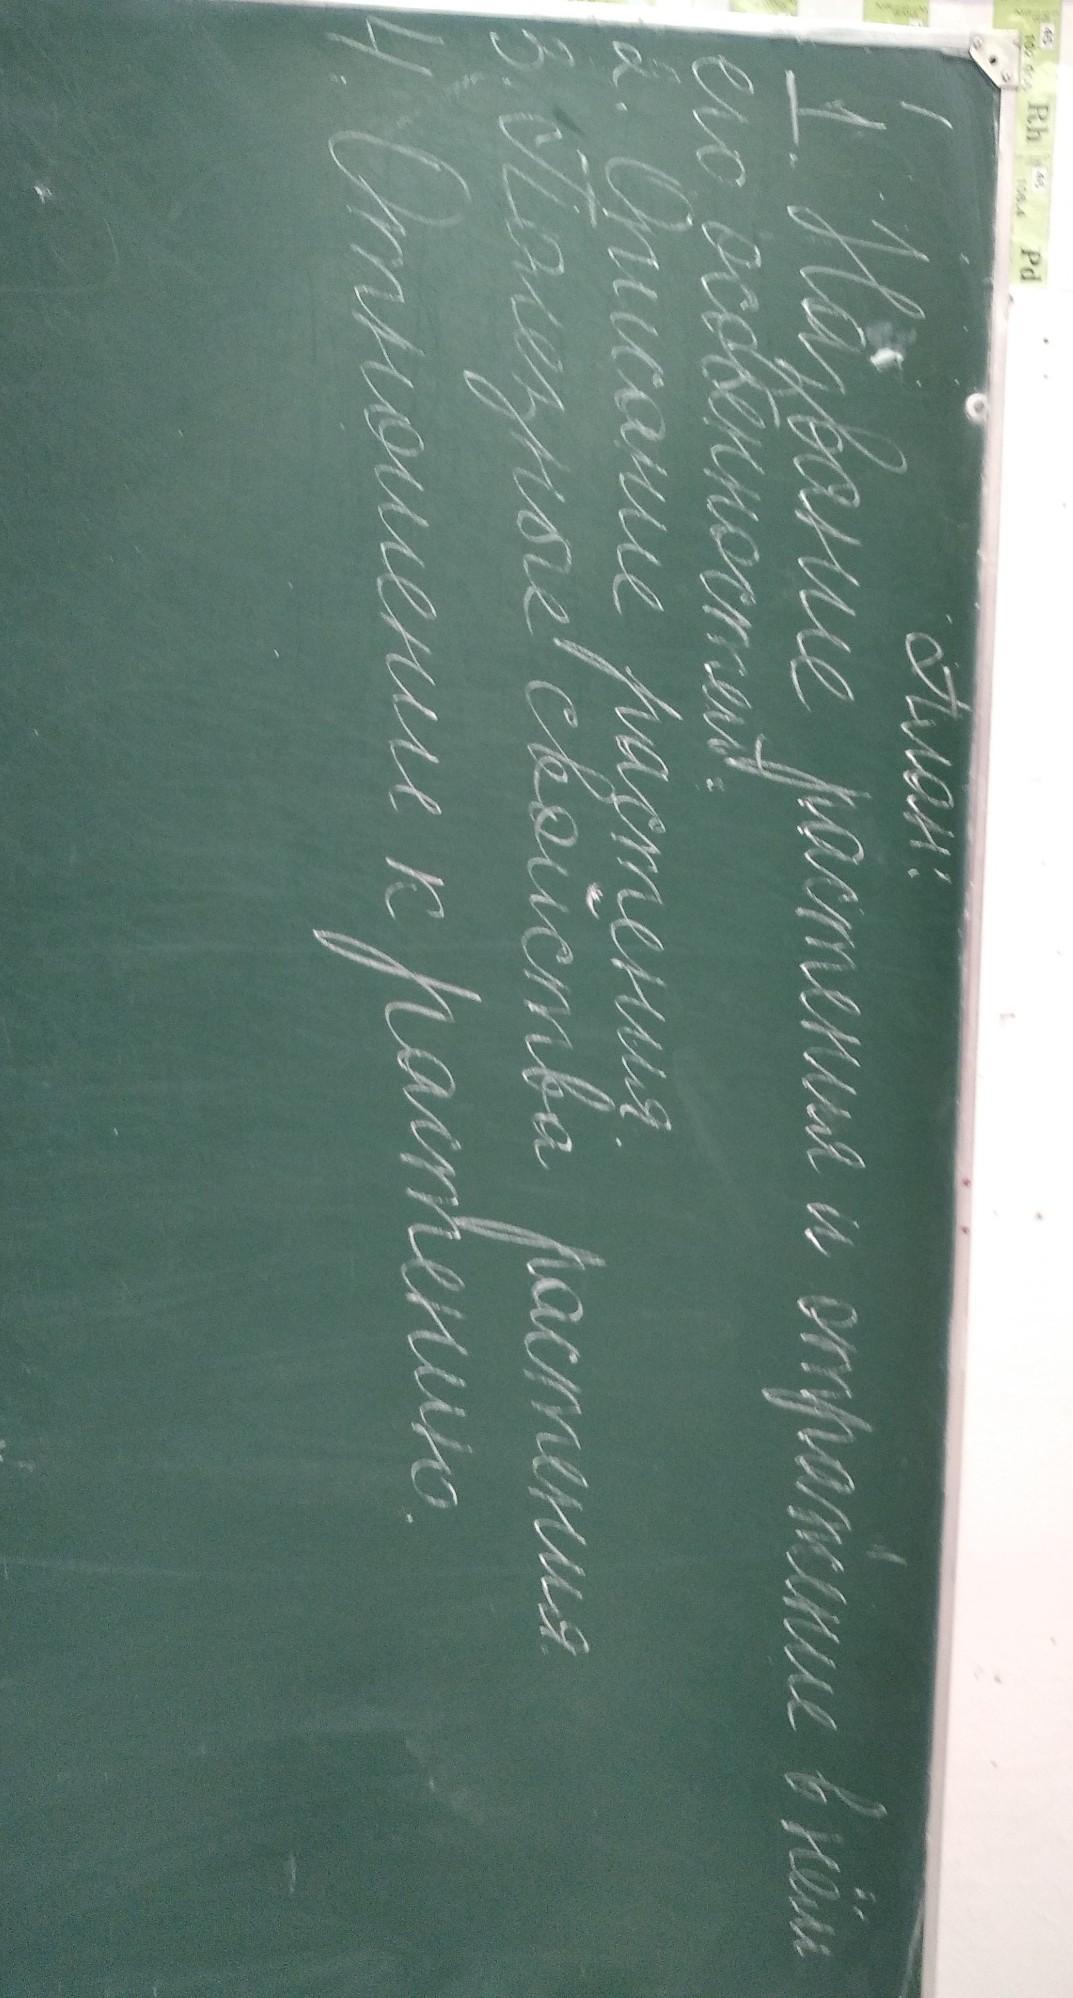 План:
1. Название растения и отражение в нём
его особенностей.
2. Описание растения.
3. Полезные свойства растения.
4. Отношение к растению.
Rh
Pd